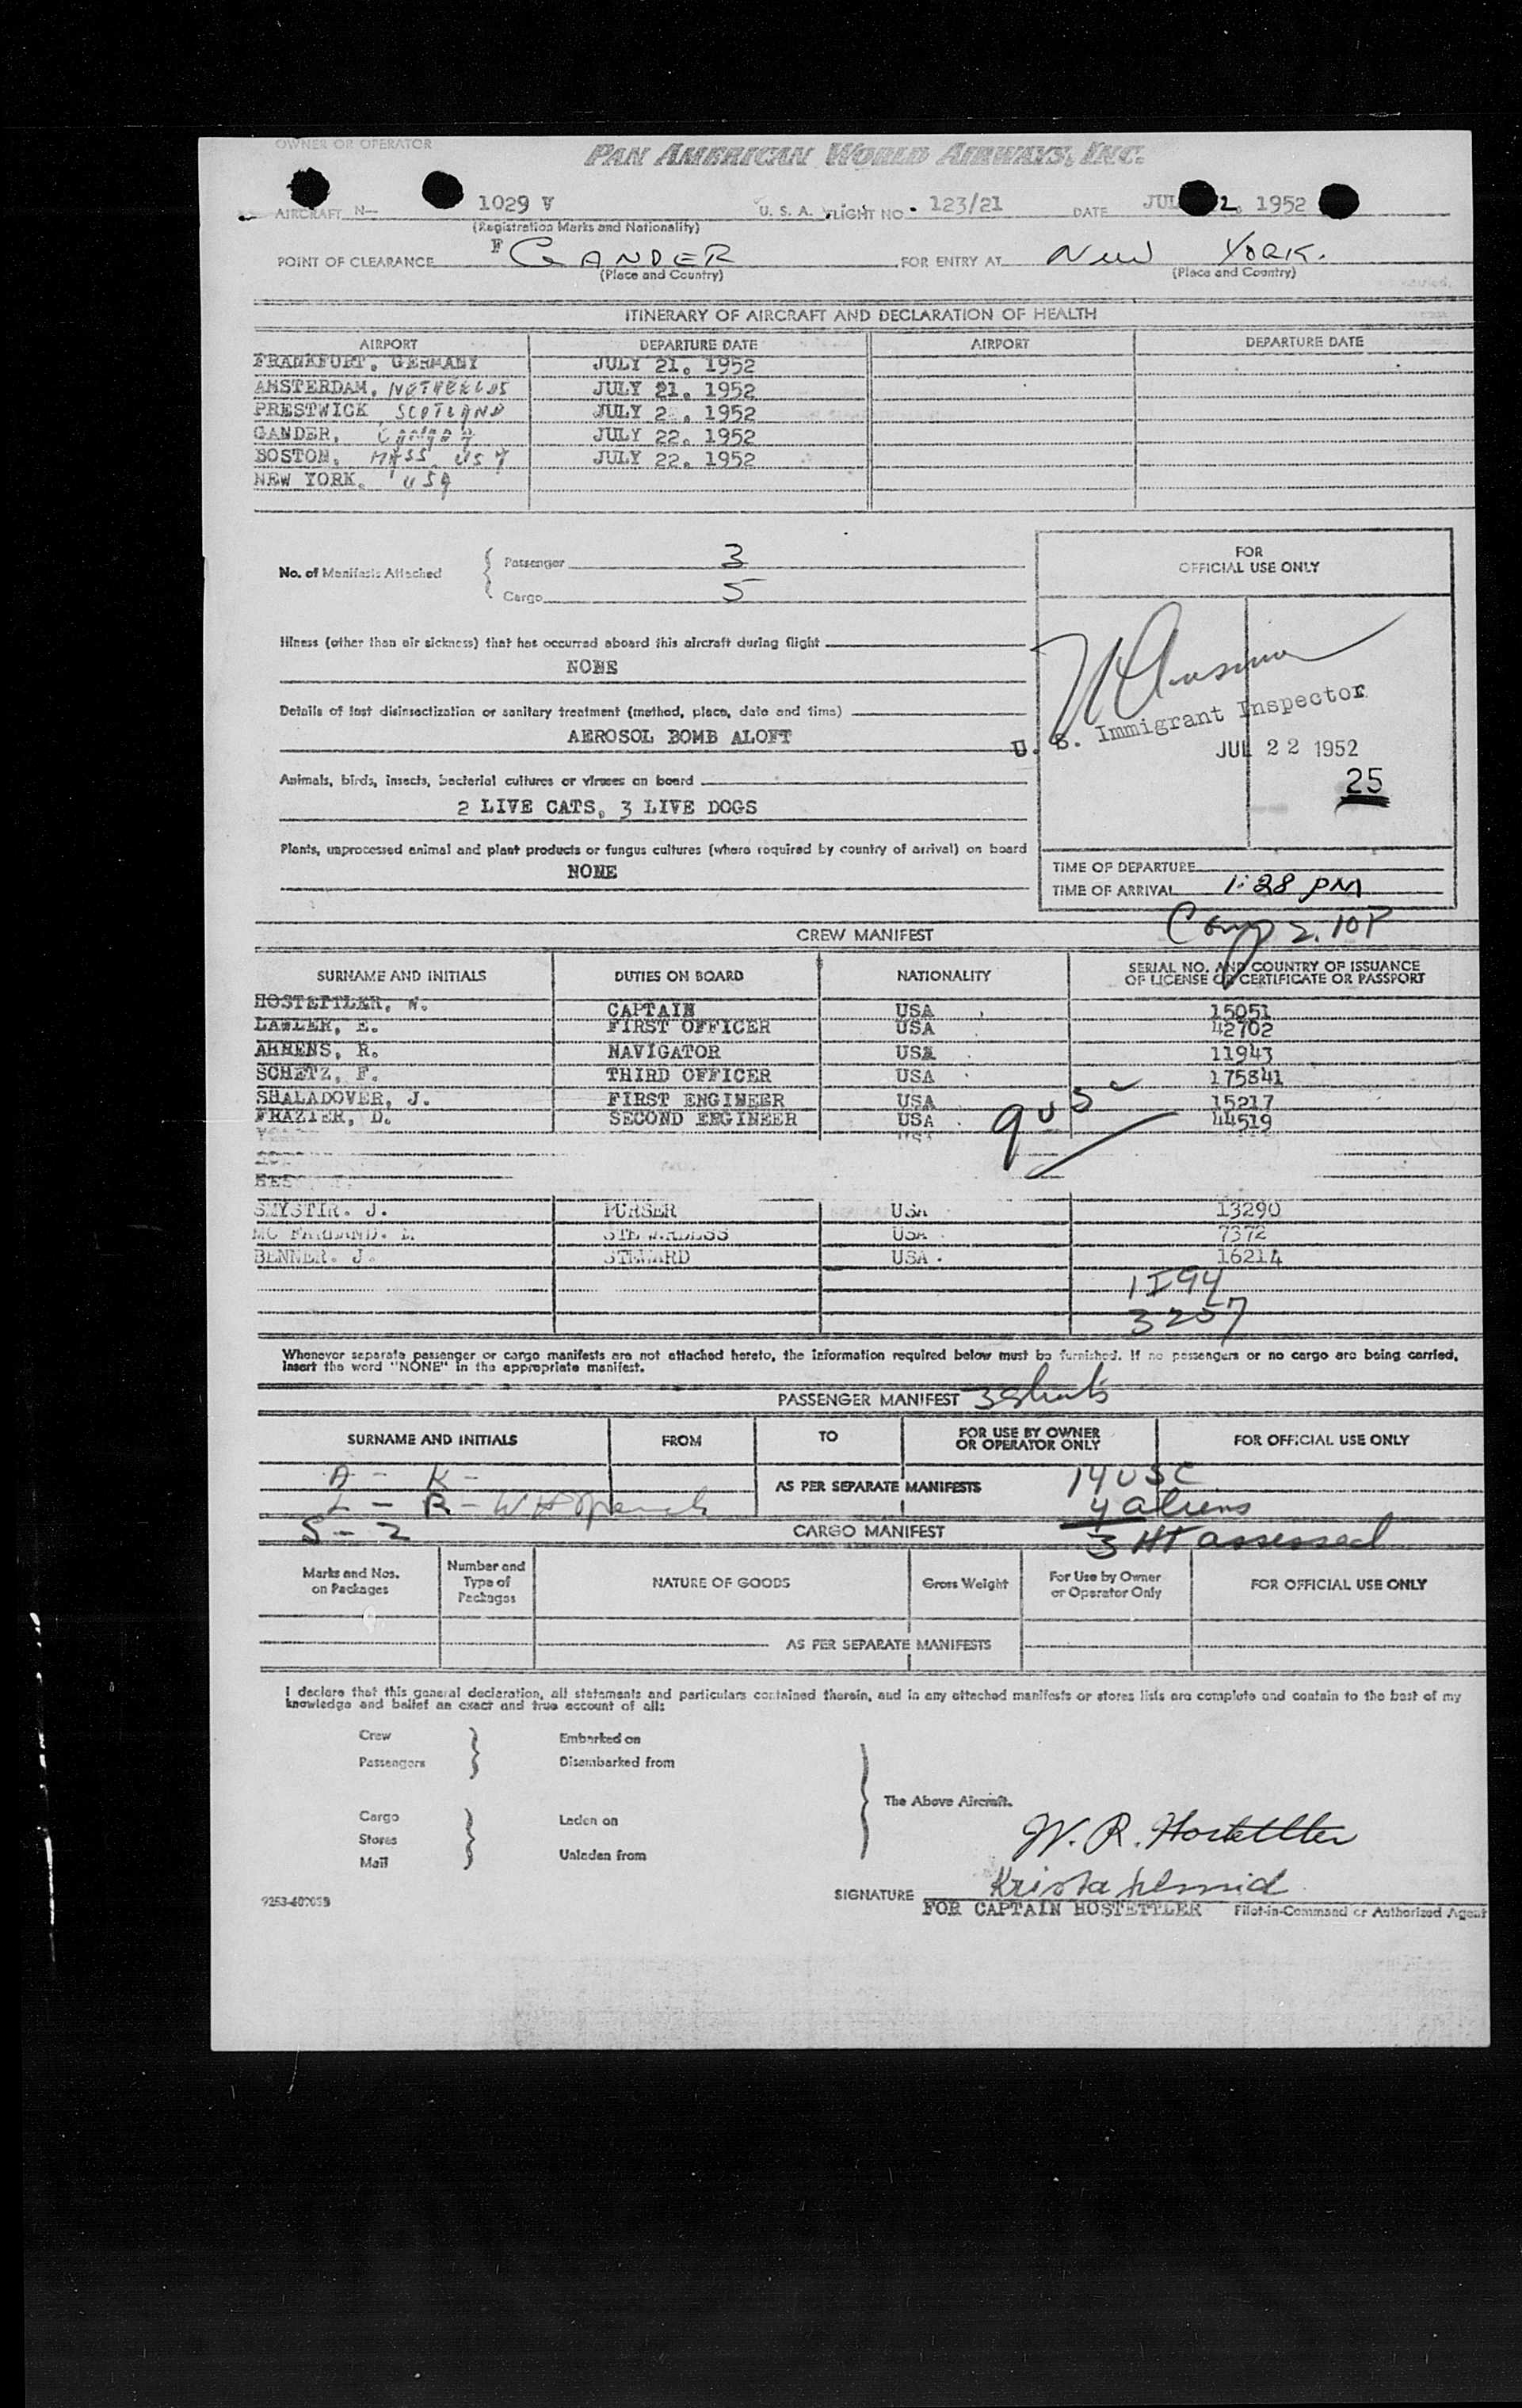 OWNER OR OPERATOR PAN AMERICAN WORLD AIRWAYS, INC.
AIRCRAFT N— 1029 V U. S. A. FLIGHT NO. 123/21 DATE JUL 2, 1952
(Registration Marks and Nationality)
POINT OF CLEARANCE F GANDER FOR ENTRY AT New YORK.
(Place and Country) (Place and Country)
ITINERARY OF AIRCRAFT AND DECLARATION OF HEALTH
AIRPORT DEPARTURE DATE AIRPORT DEPARTURE DATE
FRANKFURT, GERMANY JULY 21. 1952
AMSTERDAM, JULY 21. 1952
PRESTWICK SCOTLAND JULY 2 . 1952
GANDER, CANADA JULY 22. 1952
BOSTON, MASS USA JULY 22. 1952
NEW YORK. USA
No. of Manifests Attached
Passenger 3
Cargo 5
FOR
OFFICIAL USE ONLY
Illness (other than air sickness) that has occurred aboard this aircraft during flight
NONE
Details of last disinsectization or sanitary treatment (method, place, date and time)
AEROSOL BOMB ALOFT
U. S. Immigrant Inspector
JUL 22 1952
25
Animals, birds, insects, bacterial cultures or viruses on board
2 LIVE CATS, 3 LIVE DOGS
Plants, unprocessed animal and plant products or fungus cultures (where required by country of arrival) on board
NONE
TIME OF DEPARTURE
TIME OF ARRIVAL 1:28 PM
Comp 2.10P
CREW MANIFEST
SURNAME AND INITIALS DUTIES ON BOARD NATIONALITY SERIAL NO. AND COUNTRY OF ISSUANCE
OF LICENSE OR CERTIFICATE OR PASSPORT
HOSTETTLER, W. CAPTAIN USA 15051
LAWLER, E. FIRST OFFICER USA 42702
AHRENS, R. NAVIGATOR USA 11943
SCHETZ, F. THIRD OFFICER USA 175841
SHALADOVER, J. FIRST ENGINEER USA 15217
FRAZIER, D. SECOND ENGINEER USA 44519
9 USC
SMYSTIR. J. PURSER USA 13290
MC FARLAND. STEWARDESS USA 7372
BENNER. J. STEWARD USA 16214
1 I94
3 257
Whenever separate passenger or cargo manifests are not attached hereto, the information required below must be furnished. If no passengers or no cargo are being carried,
insert the word "NONE" in the appropriate manifest.
PASSENGER MANIFEST 3 sheets
SURNAME AND INITIALS FROM TO FOR USE BY OWNER
OR OPERATOR ONLY FOR OFFICIAL USE ONLY
A - K -
AS PER SEPARATE MANIFESTS 14 USC
L - R -
4 aliens
S - Z CARGO MANIFEST 3 HT assessed
Marks and Nos.
on Packages Number and
Type of
Packages NATURE OF GOODS Gross Weight For Use by Owner
or Operator Only FOR OFFICIAL USE ONLY
AS PER SEPARATE MANIFESTS
I declare that this general declaration, all statements and particulars contained therein, and in any attached manifests or stores lists are complete and contain to the best of my
knowledge and belief an exact and true account of all:
Crew Embarked on
Passengers Disembarked from
The Above Aircraft.
Cargo Laden on
Stores
Mail Unladen from
W. R. Hostettler
Krista
SIGNATURE
FOR CAPTAIN HOSTETTLER Pilot-in-Command or Authorized Agent